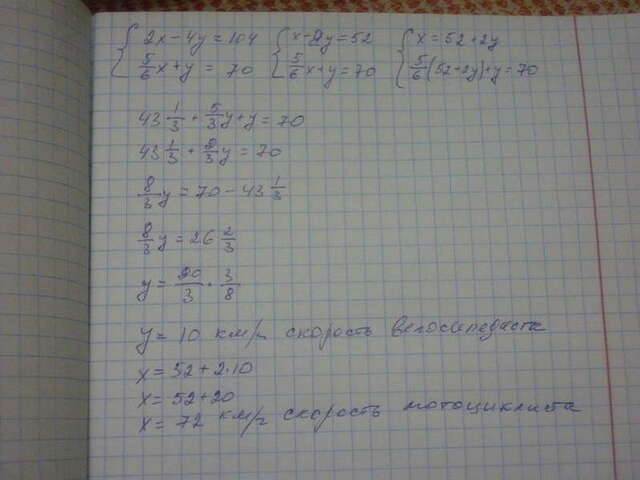 {2x - 4y = 104 {x - 2y = 52 {x = 52 + 2y
{5/6 x + y = 70 {5/6 x + y = 70 {5/6 (52 + 2y) + y = 70
43 1/3 + 5/3 y + y = 70
43 1/3 + 8/3 y = 70
8/3 y = 70 - 43 1/3
8/3 y = 26 2/3
y = 80/3 · 3/8
y = 10 км/ч скорость велосипедиста
x = 52 + 2·10
x = 52 + 20
x = 72 км/ч скорость мотоциклиста